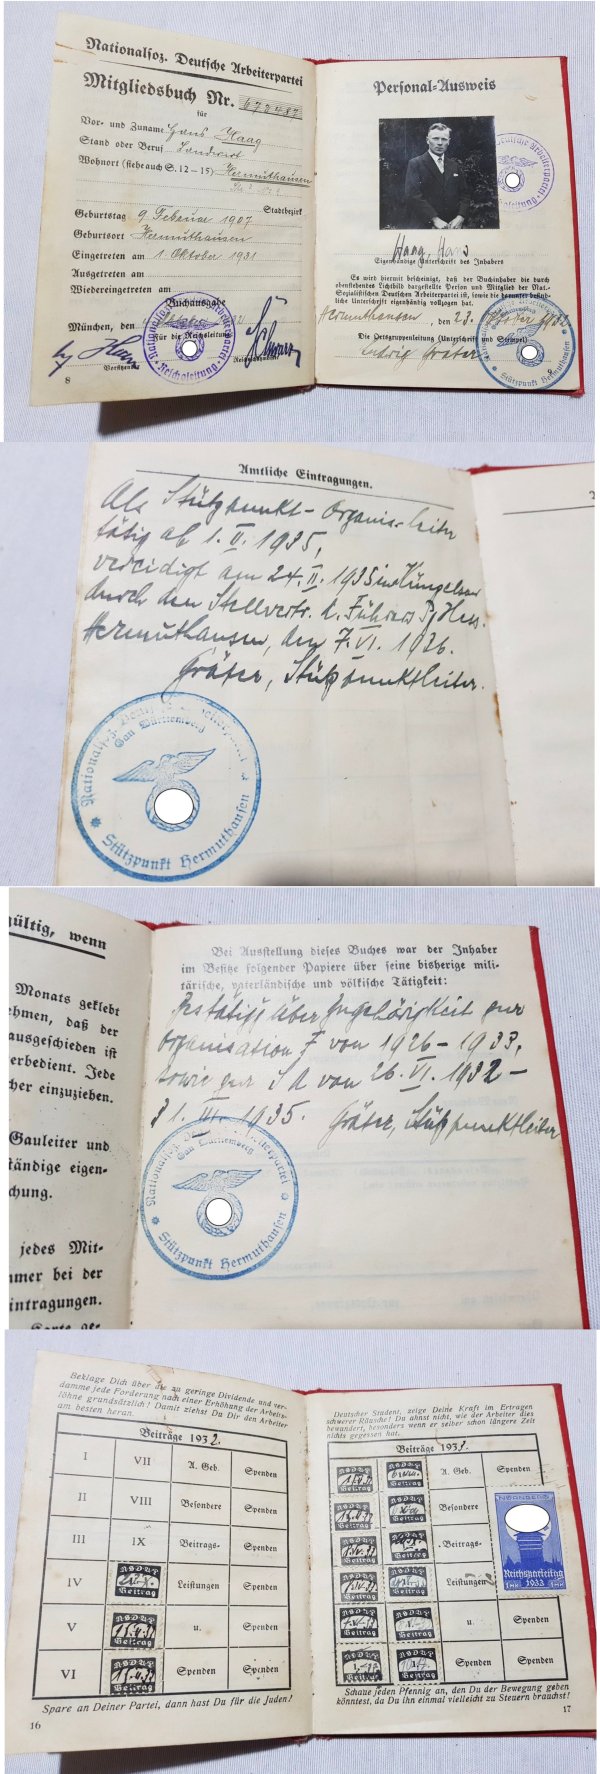 Nationalsoz. Deutsche Arbeiterpartei
Mitgliedsbuch Nr. 672487
für
Vor- und Zuname Hans Haag
Stand oder Beruf Landwirt
Wohnort (siehe auch S. 12–15) Hermuthausen
Stadtbezirk
Geburtstag 9. Februar 1907
Geburtsort Hermuthausen
Eingetreten am 1. Oktober 1931
Ausgetreten am
Wiedereingetreten am
Buchausgabe
München, den
Für die Reichsleitung
Vorsitzender
8
Personal-Ausweis
Haag, Hans
Eigenhändige Unterschrift des Inhabers
Es wird hiermit bescheinigt, daß der Buchinhaber die durch
obenstehendes Lichtbild dargestellte Person und Mitglied der Nat.-
Sozialistischen Deutschen Arbeiterpartei ist, sowie die darunter befind-
liche Unterschrift eigenhändig vollzogen hat.
Hermuthausen, den 23.
Die Ortsgruppenleitung (Unterschrift und Stempel)
Ludwig Gräter
Stützpunkt Hermuthausen
Amtliche Eintragungen.
Als Stützpunkt-Organis.-leiter
tätig ab 1. II. 1935,
vereidigt am 24. II. 1935 in
durch den Stellvertr. d. Führers Pg Hess.
Hermuthausen, den 7. VI. 1936.
Gräter, Stützpunktleiter.
Nationalsoz. Deutsche Arbeiterpartei
Gau Württemberg
Stützpunkt Hermuthausen
gültig, wenn
Monats geklebt
ehmen, daß der
ausgeschieden ist
erbedient. Jede
cher einzuziehen.
Gauleiter und
ständige eigen-
chung.
jedes Mit-
mmer bei der
intragungen.
Bei Ausstellung dieses Buches war der Inhaber
im Besitze folgender Papiere über seine bisherige mili-
tärische, vaterländische und völkische Tätigkeit:
Bestätigt über Zugehörigkeit zur
Organisation F von 1926–1933,
sowie zur S A von 26. VI. 1932 –
31. III. 1935. Gräter, Stützpunktleiter
Nationalsoz. Deutsche Arbeiterpartei
Gau Württemberg
Stützpunkt Hermuthausen
Beklage Dich über die zu geringe Dividende und ver-
damme jede Forderung nach einer Erhöhung der Arbeits-
löhne grundsätzlich! Damit ziehst Du Dir den Arbeiter
am besten heran.
Beiträge 1932
I VII A. Geb. Spenden
II VIII Besondere Spenden
III IX Beitrags- Spenden
IV Leistungen Spenden
V u. Spenden
VI Spenden Spenden
NSDAP Beitrag
Spare an Deiner Partei, dann hast Du für die Juden!
16
Deutscher Student, zeige Deine Kraft im Ertragen
schwerer Räusche! Du ahnst nicht, wie der Arbeiter dies
bewundert, besonders wenn er selber schon längere Zeit
nichts gegessen hat.
Beiträge 1933
A. Geb. Spenden
Besondere
Beitrags-
Leistungen
u. Spenden
Spenden Spenden
NSDAP Beitrag
NÜRNBERG
Reichsparteitag
1933
Schaue jeden Pfennig an, den Du der Bewegung geben
könntest, da Du ihn einmal vielleicht zu Steuern brauchst!
17